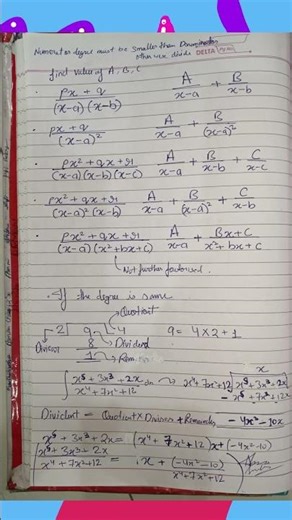 Numerator degree must be smaller than Denominator
other wise divide DELTA
find value of A, B, C
px + q / (x-a)(x-b)    A/(x-a) + B/(x-b)
px + q / (x-a)²    A/(x-a) + B/(x-a)²
px² + qx + r / (x-a)(x-b)(x-c)    A/(x-a) + B/(x-b) + C/(x-c)
px² + qx + r / (x-a)²(x-b)    A/(x-a) + B/(x-a)² + C/(x-b)
px² + qx + r / (x-a)(x²+bx+c)    A/(x-a) + Bx+C/(x²+bx+c)
Not further factorised.
If the degree is same
Quotient
2 ) 9 ( 4    9 = 4 x 2 + 1
Divisor 8 Dividend
1
∫ x⁵ + 3x³ + 2x / x⁴ + 7x² + 12 dx → x⁴ 7x² + 12 ) x⁵ + 3x³ + 2x ( x
- x⁵ + 7x³ + 12x
Dividend = Quotient x Divisor + Remainder - 4x³ - 10x
x⁵ + 3x³ + 2x = (x⁴ + 7x² + 12) x + (-4x³ - 10)
∫ x⁵ + 3x³ + 2x / x⁴ + 7x² + 12 = x + (-4x³ - 10) / x⁴ + 7x² + 12